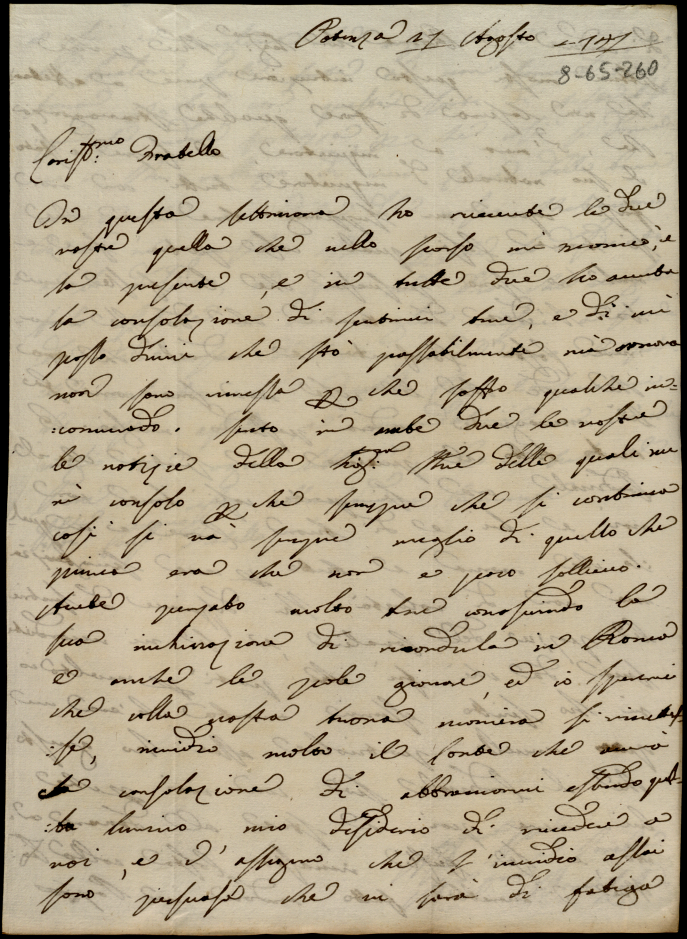 Potenza 27 Agosto
8-65-260
Cariss.mo Fratello
In questa settimana ho ricevute le due
vostre quella che nello scorso mi e
la presente, e in tutte due ho avuta
la consolazione di sentirvi bene, e di mè
posso dirvi che stò passabilmente mà ancora
non sono rimessa che soffro qualche in=
:commodo. sento in ambe due le vostre
le notizie della delle quali me
nè consolo che sempre che si continua
così si và sempre meglio di quello che
prima era che non è poco sollievo.
Avete pensato molto bene conoscendo la
sua inclinazione di ricondurla in Roma
e anche le può giovare, ed io spererei
che colla vostra buona maniera si
:se, invidio molto il Conte che avrà
la consolazione di abbracciarvi essendo ques=
:to l'unico mio desiderio di rivedere a
voi, e v'assicuro che l'invidio assai
sono persuasa che vi sarà di fatiga